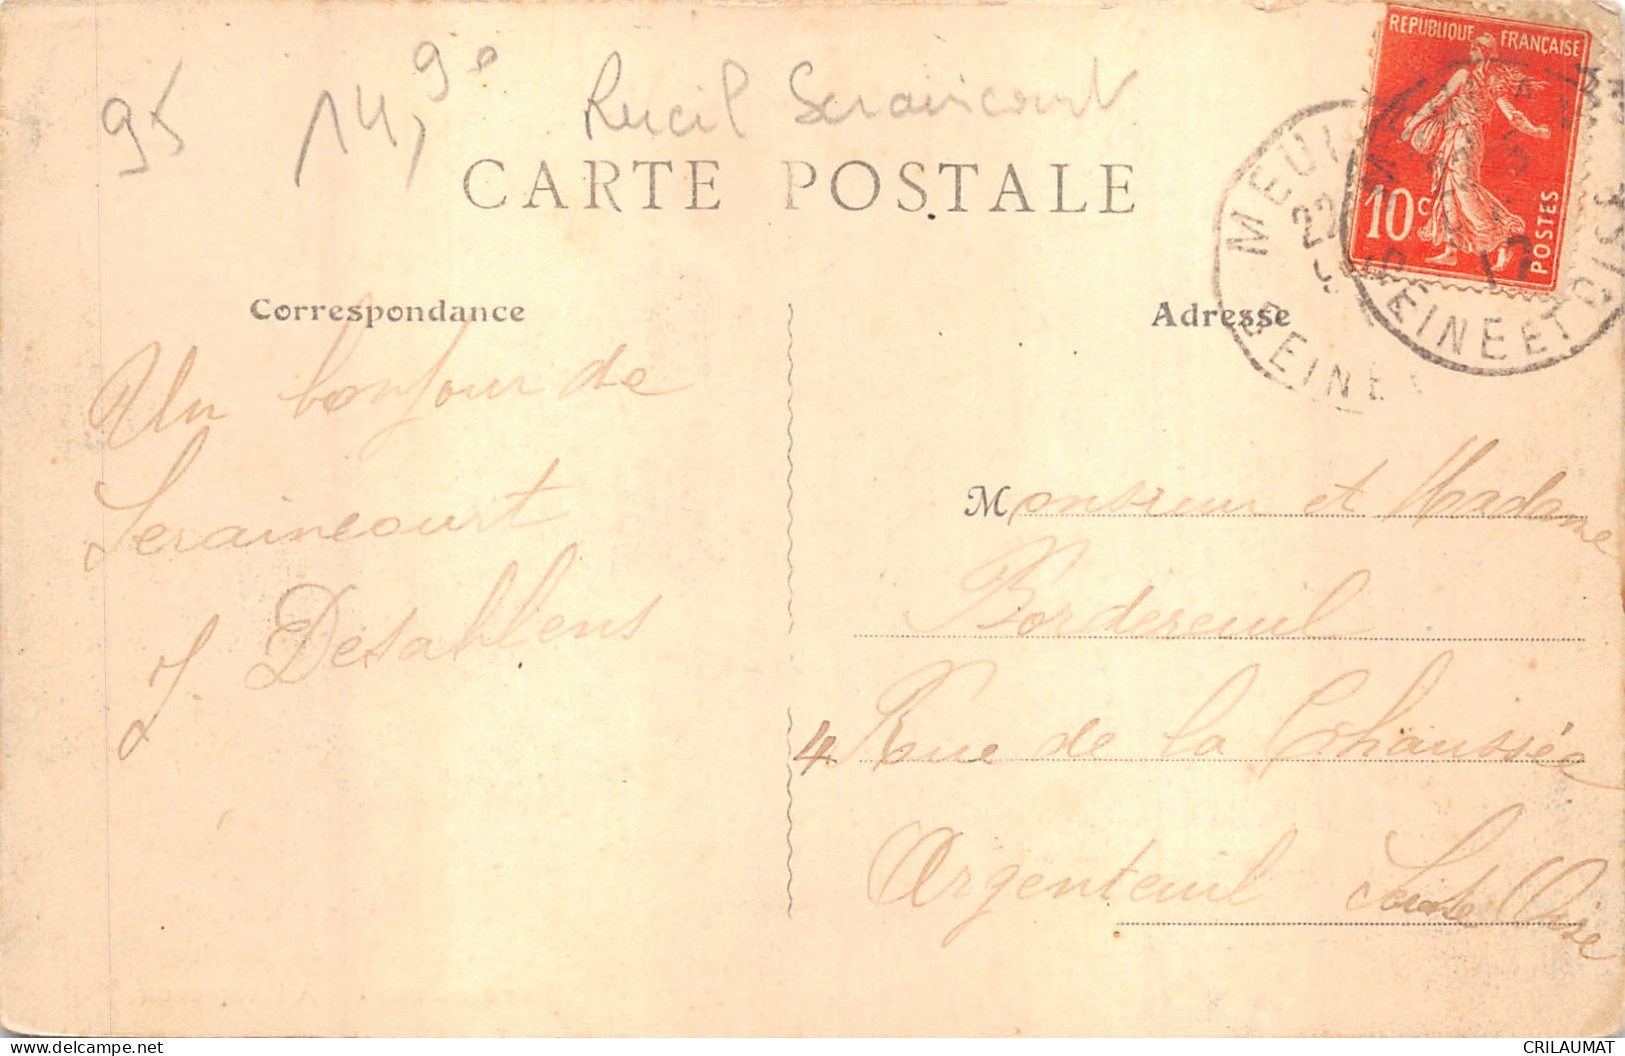 95
14,90
Rueil Seraincourt
CARTE POSTALE
REPUBLIQUE FRANÇAISE
10c
POSTES
MEUL
22
SEINE
17
SEINE ET OISE
Correspondance
Adresse
Un bonjour de
Seraincourt
J. Desahlens
Monsieur et Madame
Bordereuil
4 Rue de la Chaussée
Argenteuil Seine Oise
www.delcampe.net
CRILAUMAT